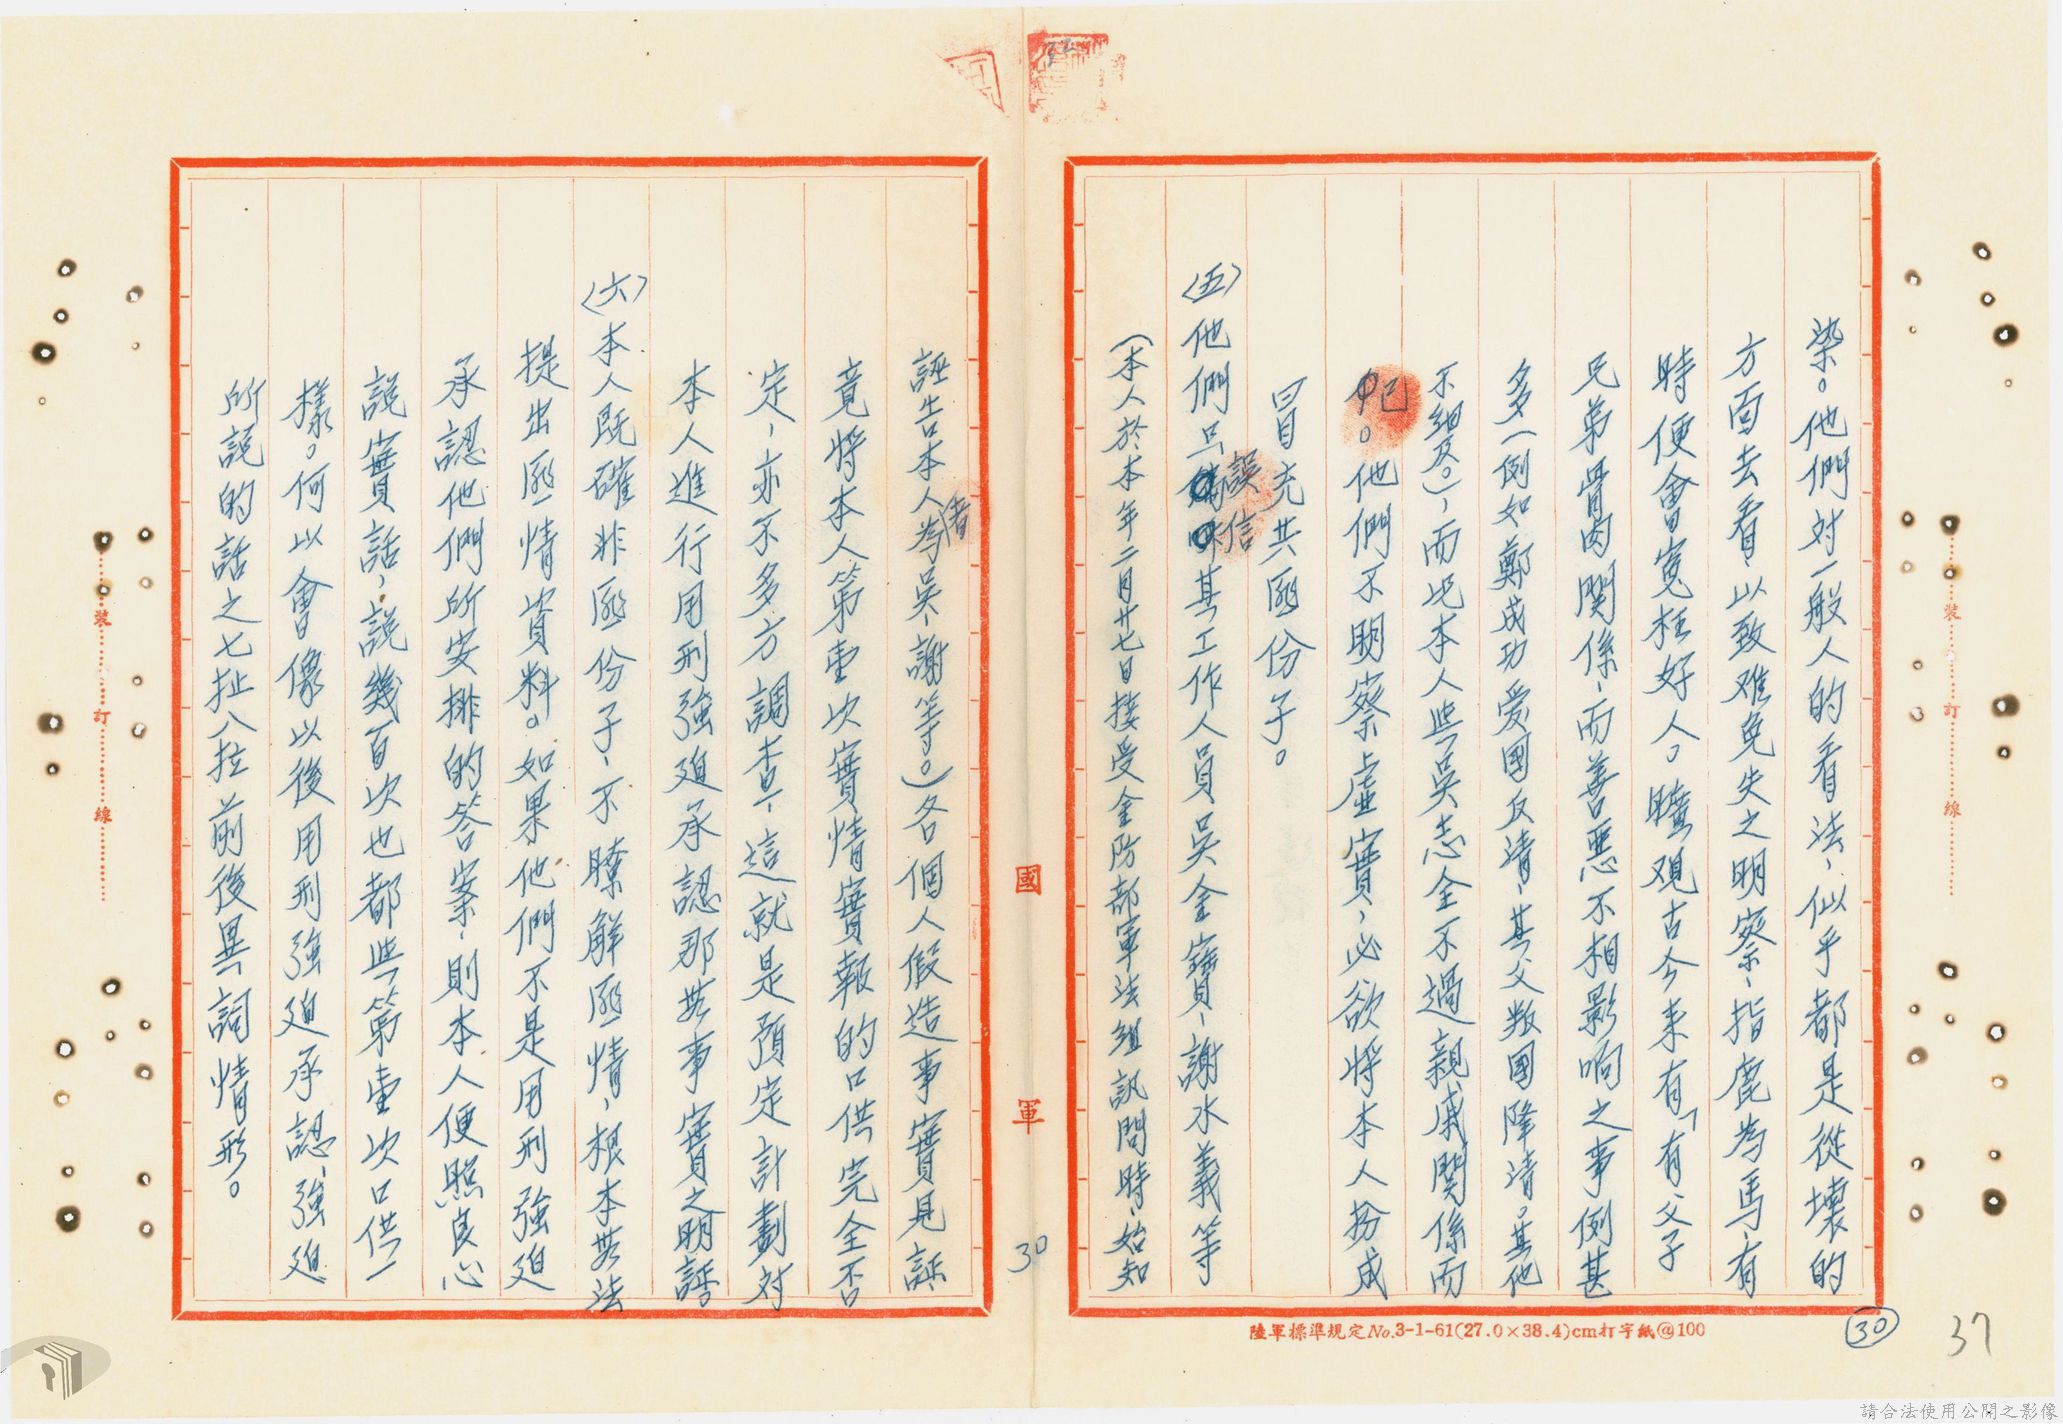 染。他們对一般人的看法，似乎都是從壞的
方面去看，以致难免失之明察，指鹿為馬，有
時便會冤枉好人。矌观古今来有「有父子
兄弟骨肉関係，而善惡不相影响之事例甚
多（例如鄭成功愛國反清，其父叛國降清。其他
不細及。），而况本人與吳志全不過親戚関係而
已。他們不明察虛實，必欲将本人扮成
冒充共匪份子。
〈五〉他們只誤信其工作人員吳金寶、謝水義等
（本人於本年二月廿七日接受金防部軍法組訊問時，始知
誣告本人者為吳、謝等。）各個人假造事實見訴
竟将本人第壹次實情實報的口供完全否
定，亦不多方調查，這就是預定計劃对
本人進行用刑強迫承認那無事實之明證
〈六〉本人既確非匪份子，不瞭解匪情，根本無法
提出匪情資料。如果他們不是用刑強迫
承認他們所安排的答案，則本人便照良心
說實話，說幾百次也都與第壹次口供一
樣。何以會像以後用刑強迫承認，強迫
所説的話之七扯八拉前後異詞情形。
國軍
30
陸軍標準規定No.3-1-61(27.0×38.4)cm打字紙@100
30
37
裝 訂 線
裝 訂 線
請合法使用公開之影像